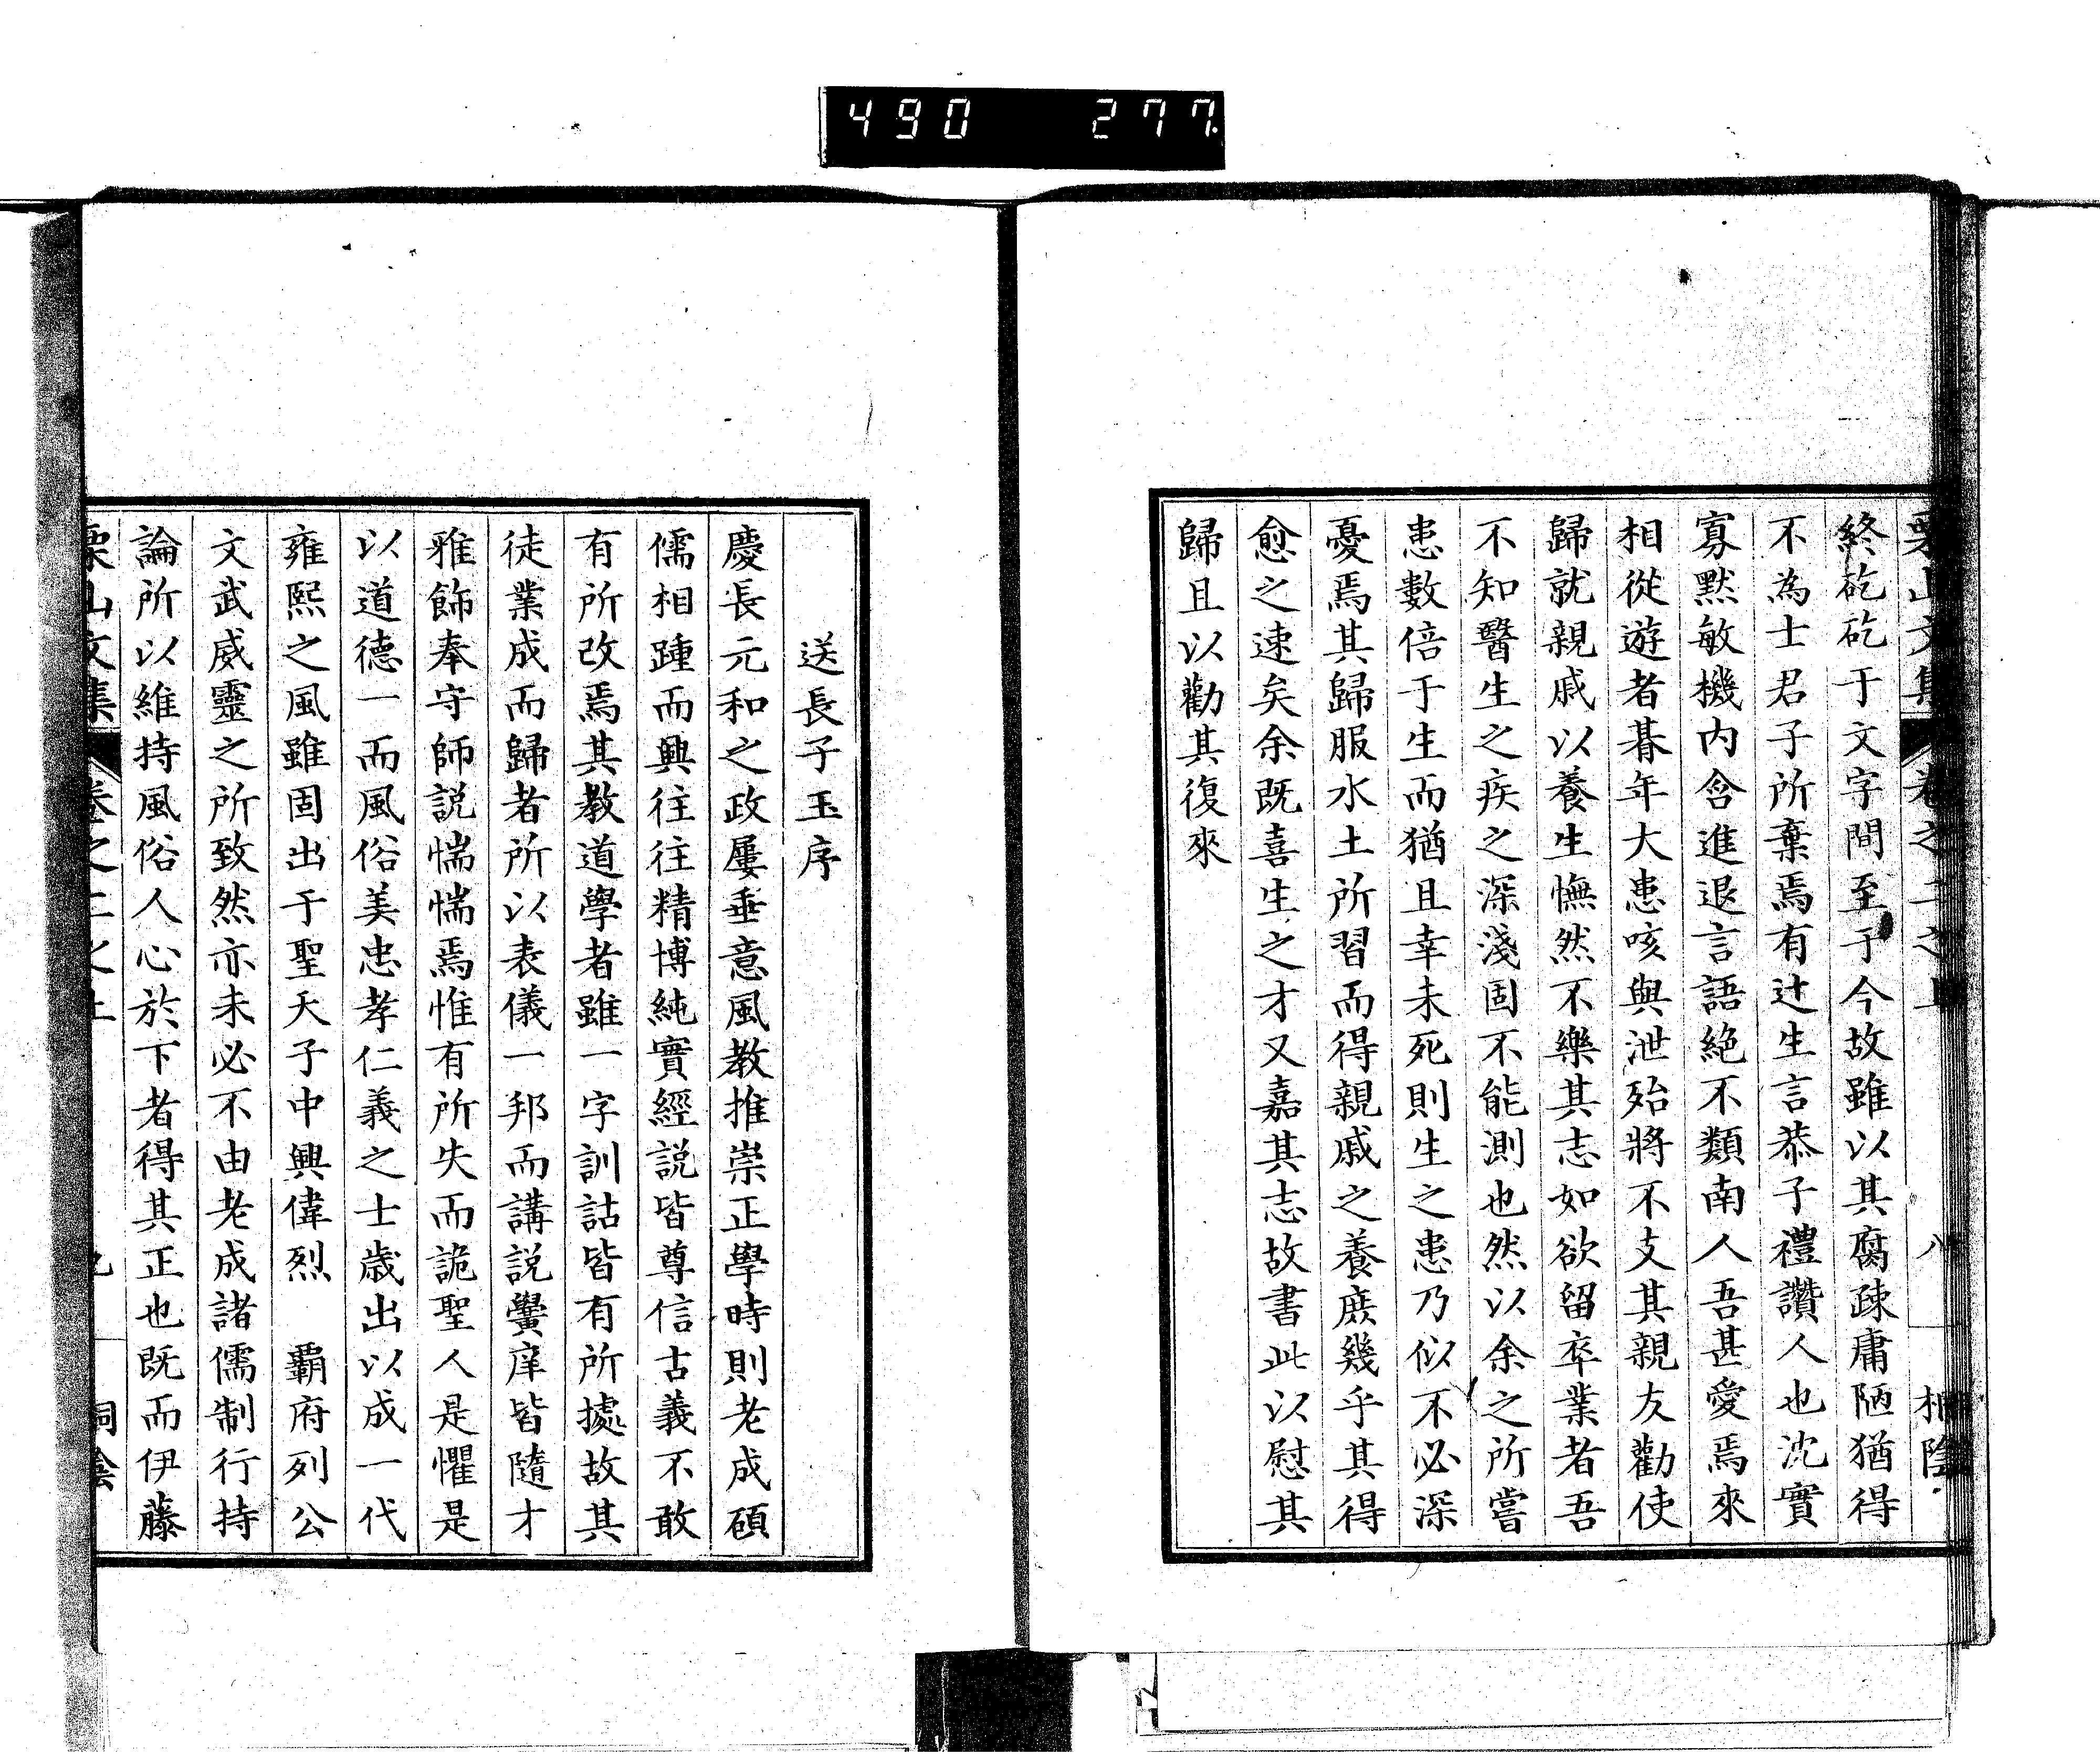 490 277
栗山文集 卷之二之上 八 桐陰
終矻矻于文字間至于今故雖以其腐疎庸陋猶得
不為士君子所棄焉有辻生言恭子禮讚人也沈實
寡默敏機內含進退言語絶不類南人吾甚愛焉來
相從遊者朞年大患咳與泄殆將不支其親友勸使
歸就親戚以養生憮然不樂其志如欲留卒業者吾
不知醫生之疾之深淺固不能測也然以余之所嘗
患數倍于生而猶且幸未死則生之患乃似不必深
憂焉其歸服水土所習而得親戚之養庶幾乎其得
愈之速矣余既喜生之才又嘉其志故書此以慰其
歸且以勸其復來
送長子玉序
慶長元和之政屢垂意風教推崇正學時則老成碩
儒相踵而興往往精博純實經説皆尊信古義不敢
有所改焉其教道學者雖一字訓詁皆有所據故其
徒業成而歸者所以表儀一邦而講説黌庠皆隨才
雅飭奉守師説惴惴焉惟有所失而詭聖人是懼是
以道德一而風俗美忠孝仁義之士歳出以成一代
雍熙之風雖固出于聖天子中興偉烈　覇府列公
文武威靈之所致然亦未必不由老成諸儒制行持
論所以維持風俗人心於下者得其正也既而伊藤
栗山文集 卷之二之上 九 桐陰